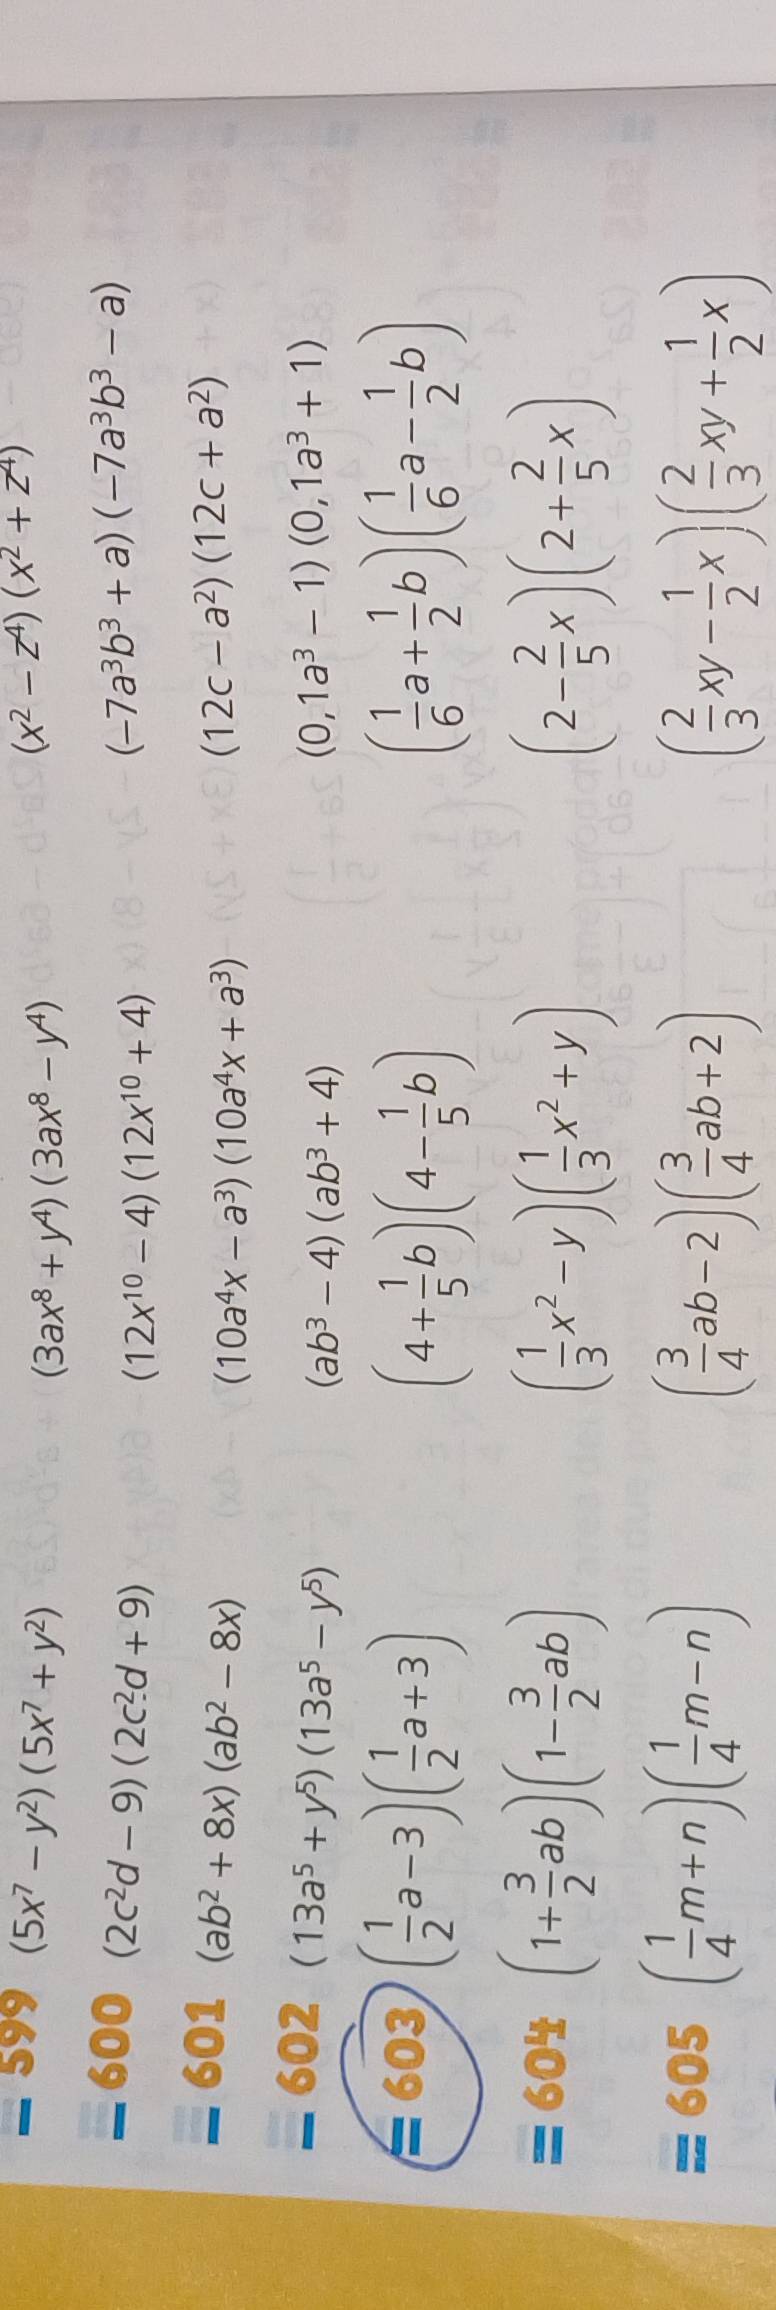 599 (5x⁷ − y²) (5x⁷ + y²) (3ax⁸ + y⁴) (3ax⁸ − y⁴) (x² − z⁴) (x² + z⁴)
600 (2c²d − 9) (2c²d + 9) (12x¹⁰ − 4) (12x¹⁰ + 4) (−7a³b³ + a) (−7a³b³ − a)
601 (ab² + 8x) (ab² − 8x) (10a⁴x − a³) (10a⁴x + a³) (12c − a²) (12c + a²)
602 (13a⁵ + y⁵) (13a⁵ − y⁵) (ab³ − 4) (ab³ + 4) (0,1a³ − 1) (0,1a³ + 1)
603 (1/2 a − 3) (1/2 a + 3) (4 + 1/5 b) (4 − 1/5 b) (1/6 a + 1/2 b) (1/6 a − 1/2 b)
604 (1 + 3/2 ab) (1 − 3/2 ab) (1/3 x² − y) (1/3 x² + y) (2 − 2/5 x) (2 + 2/5 x)
605 (1/4 m + n) (1/4 m − n) (3/4 ab − 2) (3/4 ab + 2) (2/3 xy − 1/2 x) (2/3 xy + 1/2 x)